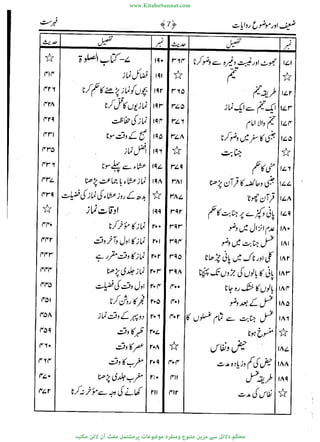 www.KitaboSunnat.com
ضعیف اور موضوع روایات
﴿ 7 ﴾
فہرست
نمبر تفصیل حدیث
۱۷۱ جھوٹ اور غیبت وغیرہ سے وضو کرنا ۳۶۴
☆ تیمم
۱۷۲ طریقہ تیمم ۳۶۹
۱۷۳ ایک تیمم سے ایک نماز ۳۷۵
۱۷۴ تیمم والا امام ۳۷۶
۱۷۵ جنبی کا سفر میں وضو کرنا ۳۷۸
☆ جنابت ☆
۱۷۶ منی کا حکم ۳۷۹
۱۷۷ جنبی و حائضہ کا قرآن پڑھنا ۳۸۱
۱۷۸ قرآن چھونا ۳۸۷
۱۷۹ پانی و کپڑے پر جنابت کا حکم ۳۹۲
۱۸۰ عدم انزال میں وضو ۳۹۴
۱۸۱ غسل جنابت میں وضو ۳۹۴
۱۸۲ کلی اور ناک میں پانی چڑھانا ۳۹۵
۱۸۳ پانی کا بالوں کی جڑوں تک پہنچنا ۳۹۸
۱۸۴ بالوں کا خشک رہ جانا ۴۰۰
۱۸۵ غسل کے بعد وضو ۴۰۱
۱۸۶ غسل جنابت سے تمام غسلوں کا ۴۰۲
منسوخ ہونا
۱۸۷ حیض و نفاس ☆
۱۸۸ حیض کی کم و زیادہ مدت ۴۰۴
۱۸۹ طریقہ غسل ۴۱۰
☆ نفاس کی مدت ۴۱۱
نمبر تفصیل حدیث
۱۹۰ ۷- کتاب الصلوة ☆
☆ فضائل نماز ۴۱۴
۱۹۲ بچوں کو نماز پڑھنے کا حکم کرنا ۴۲۶
۱۹۳ نمازیوں کا قتل کرنا ۴۲۹
۱۹۴ نماز کی حفاظت ۴۳۱
۱۹۵ صبح کے وقت سونا ۴۳۳
۱۹۶ فضل نماز ۴۳۵
۱۹۷ عشاء سے پہلے سونا ۴۳۶
۱۹۸ عشاء با جماعت پڑھنا ۴۳۷
☆ بدھ کے روز عشاء کی نماز کی فضیلت ۴۳۹
۱۹۹ اوقات نماز ☆
۲۰۰ نماز کا مؤخر کرنا ۴۴۰
۲۰۱ نماز کا اول و آخر وقت ۴۴۲
۲۰۲ نماز کا وقت مقرر ہے ۴۴۳
۲۰۳ نماز جلدی پڑھنا ۴۴۴
۲۰۴ اول وقت کی فضیلت ۴۴۵
۲۰۵ فجر کا روشن کرنا ۴۵۱
۲۰۶ دوپہر کے وقت نماز ۴۵۸
۲۰۷ ظہر کا وقت ۴۵۹
۲۰۸ عصر کا وقت ۴۶۰
۲۰۹ مغرب کا وقت ۴۶۴
۲۱۰ مغرب جلدی پڑھنا ۴۷۰
۲۱۱ کھانے کی وجہ سے مؤخر نہ کرنا ۴۷۲
محکم دلائل سے مزین متنوع ومنفرد موضوعات پر مشتمل مفت آن لائن مکتبہ